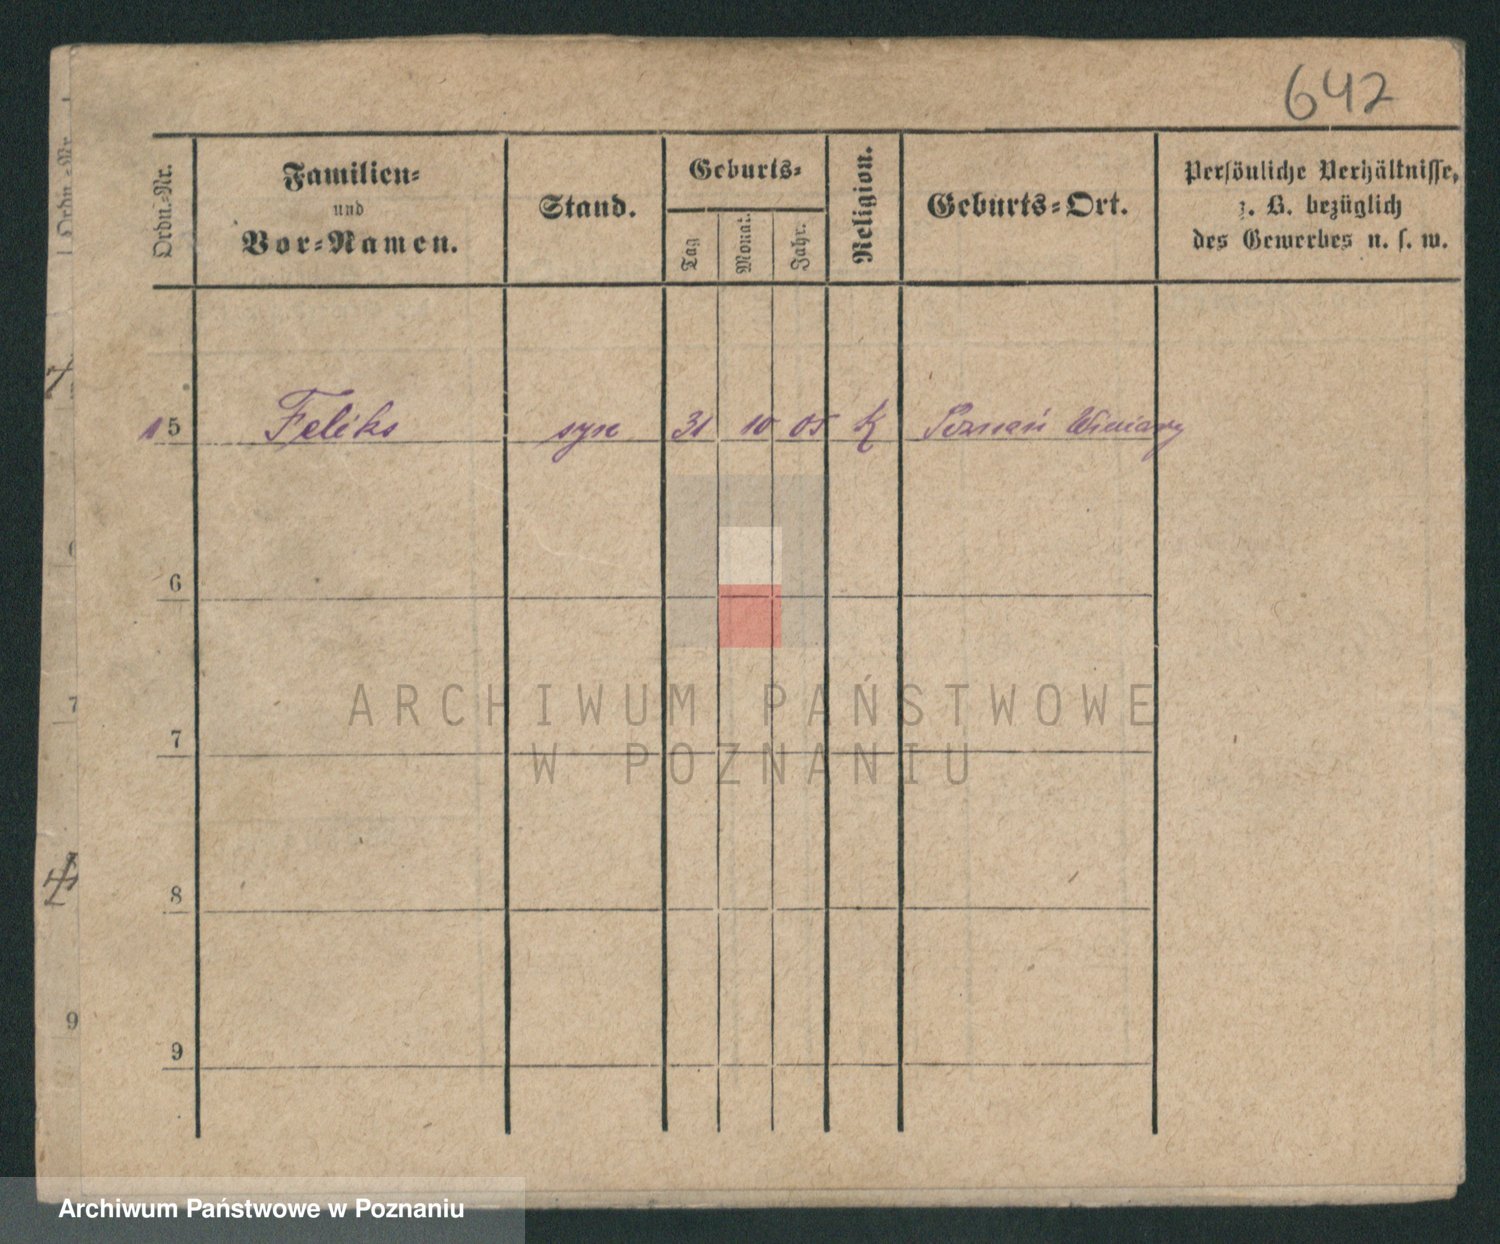 642
Ordn.-Nr.
Familien-
und
Vor-Namen.
Stand.
Geburts-
Tag
Monat.
Jahr.
Religion.
Geburts-Ort.
Persönliche Verhältnisse,
z. B. bezüglich
des Gewerbes u. s. w.
Ordn.-Nr.
5 Feliks syn 31 10 05 K Poznań Winiary
6
7
7
8
9
9
ARCHIWUM PAŃSTWOWE
W POZNANIU
Archiwum Państwowe w Poznaniu